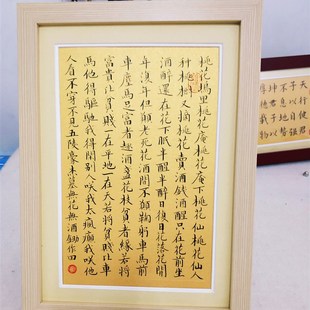 桃花塢里桃花庵桃花庵下桃花仙桃花仙人
种桃樹又摘桃花賣酒錢酒醒只在花前坐
酒醉還在花下眠半醒半醉日復日花落花開
年復年但願老死花酒間不願鞠躬車馬前
車塵馬足富者趣酒盞花枝貧者緣若將
富貴比貧賤一在平地一在天若將貧賤比車
馬他得驅馳我得閑別人咲我太瘋癲我咲他
人看不穿不見五陵豪杰墓無花無酒鋤作田
天行健君
子以自強
不息地勢
坤君子以
厚德載物